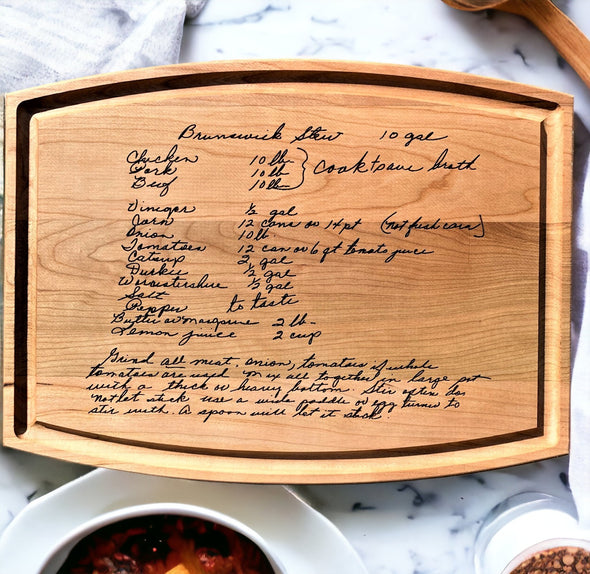 Brunswick Stew 10 gal
Chicken 10 lb
Pork 10 lb
Beef 10 lb
Cook & save broth
Vinegar ½ gal
Corn 12 cans or 14 pt (not fresh corn)
Onion 10 lb
Tomatoes 12 can or 6 qt tomato juice
Catsup 2 gal
Durkee ½ gal
Worcestershire ½ gal
Salt
Pepper to taste
Butter or Margarine 2 lb
Lemon juice 2 cup
Grind all meat, onion, tomatoes if whole
tomatoes are used. Mix all together in large pot
with a thick or heavy bottom. Stir often do
not let stick use a wide paddle or egg turner to
stir with. A spoon will let it stick.